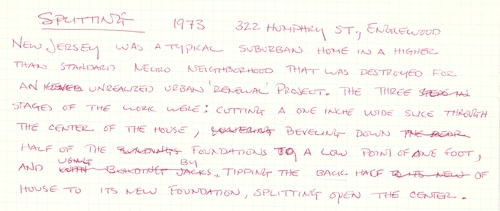 SPLITTING 1973 322 HUMPHRY ST., ENGLEWOOD
NEW JERSEY WAS A TYPICAL SUBURBAN HOME IN A HIGHER
THAN STANDARD NEGRO NEIGHBORHOOD THAT WAS DESTROYED FOR
AN UNREALIZED URBAN 'RENEWAL' PROJECT. THE THREE
STAGES OF THE WORK WERE: CUTTING A ONE INCH WIDE SLICE THROUGH
THE CENTER OF THE HOUSE, BEVELING DOWN THE REAR
HALF OF THE BUILDINGS FOUNDATIONS TO, A LOW POINT OF ONE FOOT,
AND WITH USING BUILDING JACKS, BY TIPPING THE BACK HALF TO ITS NEW OF
HOUSE TO ITS NEW FOUNDATION, SPLITTING OPEN THE CENTER.